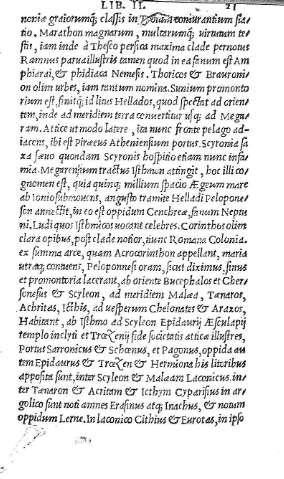 LIB. II. 21
noxiæ graiorumq; classis in coniurantium sta-
tio. Marathon magnarum, multarumq; uirtutum te-
stis, iam inde à Theseo persica maxima clade pernotus
Ramnus parua illustris tamen quod in ea fanum est Am
phiarai, & phidiaca Nemesis. Thoricos & Brauroni-
on olim urbes, iam tantum nomina. Sunium promonto
rium est, finitq; id litus Hellados, quod spectat ad orien
tem, inde ad meridiem terra conuertitur usq; ad Mega
ram. Attice ut modo latere, ita nunc fronte pelago ad-
iacens, ibi est Piræus Atheniensium portus. Scyronia sa
xa sæuo quondam Scyronis hospitio etiam nunc infa-
mia. Megarensium tractus Isthmon attingit, hoc illi co-
gnomen est, quia quinq; millium spacio Ægeum mare
ab Ionio submouens, angusto tramite Helladi Pelopone
son annectit, in eo est oppidum Cenchreæ, fanum Neptu
ni. Ludi quos Isthmicos uocant celebres. Corinthos olim
clara opibus, post clade notior, nunc Romana Colonia.
ex summa arce, quam Acrocorinthon appellant, maria
utraq; contuens, Peloponnesi oram, sicut diximus, sinus
et promontoria lacerant, ab oriente Bucephalos et Cher
sonesus & Scyleon, ad meridiem Malæa, Tænaros,
Achritas, Icthis, ad uesperum Chelonates & Araxos,
Habitant, ab Isthmo ad Scyleon Epidaurij Æsculapij
templo inclyti et Trœzenij fide societatis atticæ illustres,
Portus Sarronicus & Schœnus, et Pogonus, oppida au
tem Epidaurus & Trœzen & Hermiona his litoribus
apposita sunt, inter Scyleon & Malæam Laconicus. in-
ter Tænaron & Acritam & Icthyn Cyparisius in ar-
golico sunt noti amnes Erasinus atq; Inachus, & notum
oppidum Lerne. In laconico Cithius & Eurotas, in ipso